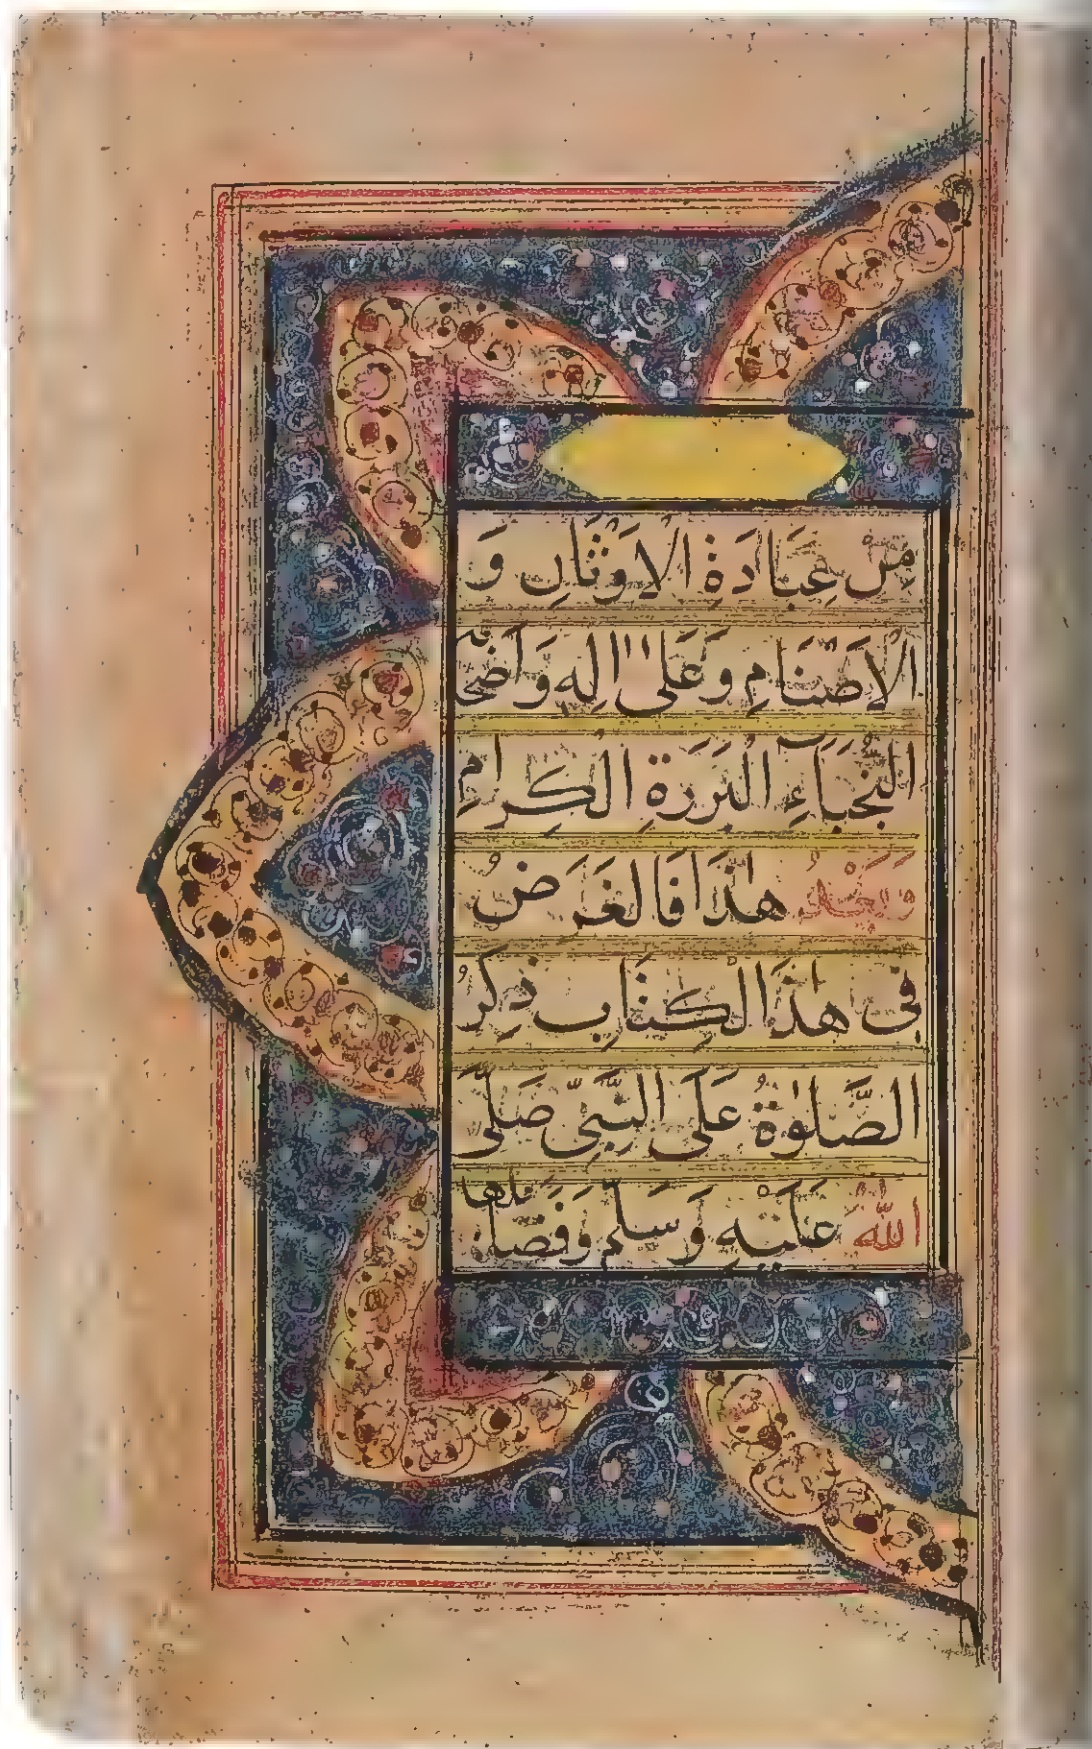 مِنْ عِبَادَةِ الْاَوْثَانِ وَ
الْاَصْنَامِ وَعَلٰى اٰلِهٖ وَاَصْحَابِهِ
النُّجَبَآءِ الْبَرَرَةِ الْكِرَامِ
وَبَعْدُ هٰذَا فَالْغَرَضُ
فِى هٰذَا الْكِتَابِ ذِكْرُ
الصَّلٰوةِ عَلَى النَّبِىِّ صَلَّى
اللهُ عَلَيْهِ وَسَلَّمَ وَفَضَائِلِهَا